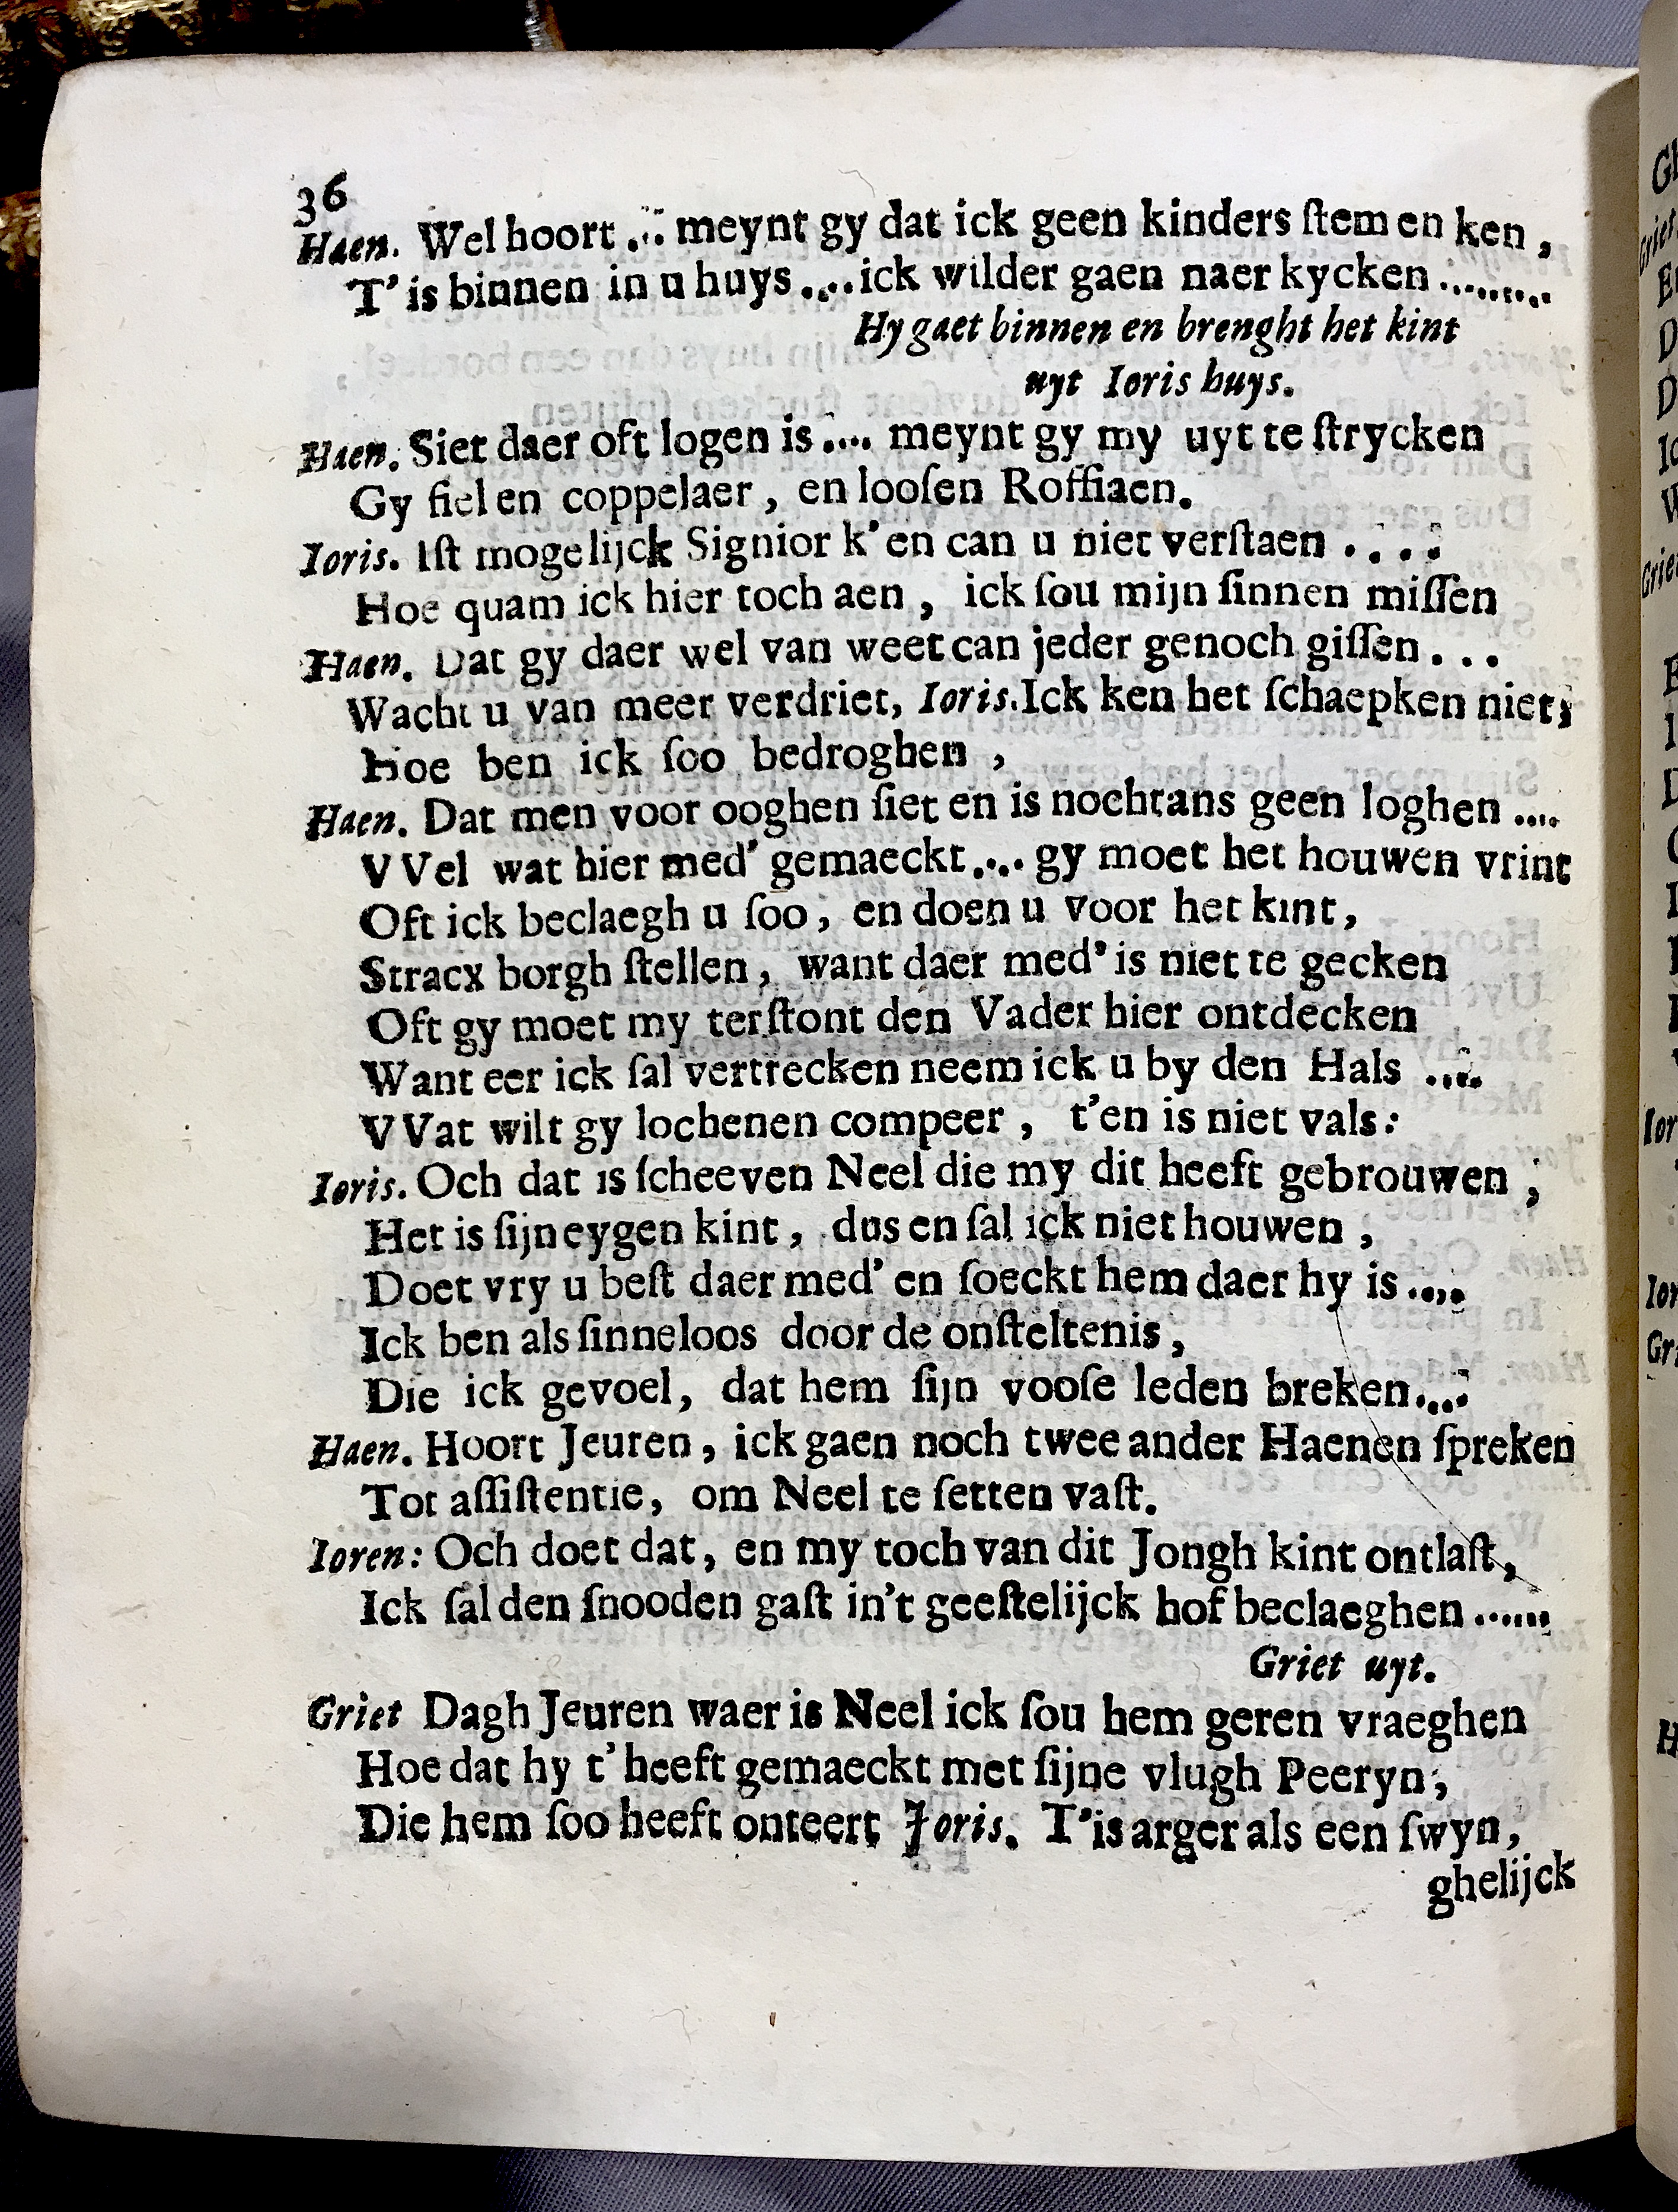 36
Haen. Wel hoort .... meynt gy dat ick geen kinders ſtem en ken,
T' is binnen in u huys .... ick wilder gaen naer kycken ........
Hy gaet binnen en brenght het kint
uyt Ioris huys.
Haen. Siet daer oft logen is .... meynt gy my uyt te ſtrycken
Gy fiel en coppelaer, en looſen Roffiaen.
Ioris. Iſt mogelijck Signior k'en can u niet verſtaen ....
Hoe quam ick hier toch aen, ick ſou mijn ſinnen miſſen
Haen. Dat gy daer wel van weet can jeder genoch giſſen...
Wacht u van meer verdriet, Ioris. Ick ken het ſchaepken niet;
Hoe ben ick ſoo bedroghen,
Haen. Dat men voor ooghen ſiet en is nochtans geen loghen ....
VVel wat hier med' gemaeckt.... gy moet het houwen vrint
Oft ick beclaegh u ſoo, en doen u voor het kint,
Stracx borgh ſtellen, want daer med' is niet te gecken
Oft gy moet my terſtont den Vader hier ontdecken
Want eer ick ſal vertrecken neem ick u by den Hals ....
VVat wilt gy lochenen compeer, t'en is niet vals:
Ioris. Och dat is ſcheeven Neel die my dit heeft gebrouwen;
Het is ſijn eygen kint, dus en ſal ick niet houwen,
Doet vry u beſt daer med' en ſoeckt hem daer hy is ....
Ick ben als ſinneloos door de onſteltenis,
Die ick gevoel, dat hem ſijn vooſe leden breken....
Haen. Hoort Jeuren, ick gaen noch twee ander Haenen ſpreken
Tot aſſiſtentie, om Neel te ſetten vaſt.
Ioren: Och doet dat, en my toch van dit Jongh kint ontlaſt,
Ick ſal den ſnooden gaſt in't geeſtelijck hof beclaeghen ......
Griet uyt.
Griet Dagh Jeuren waer is Neel ick ſou hem geren vraeghen
Hoe dat hy t' heeft gemaeckt met ſijne vlugh Peeryn,
Die hem ſoo heeft onteert Joris. T'is arger als een ſwyn,
ghelijck